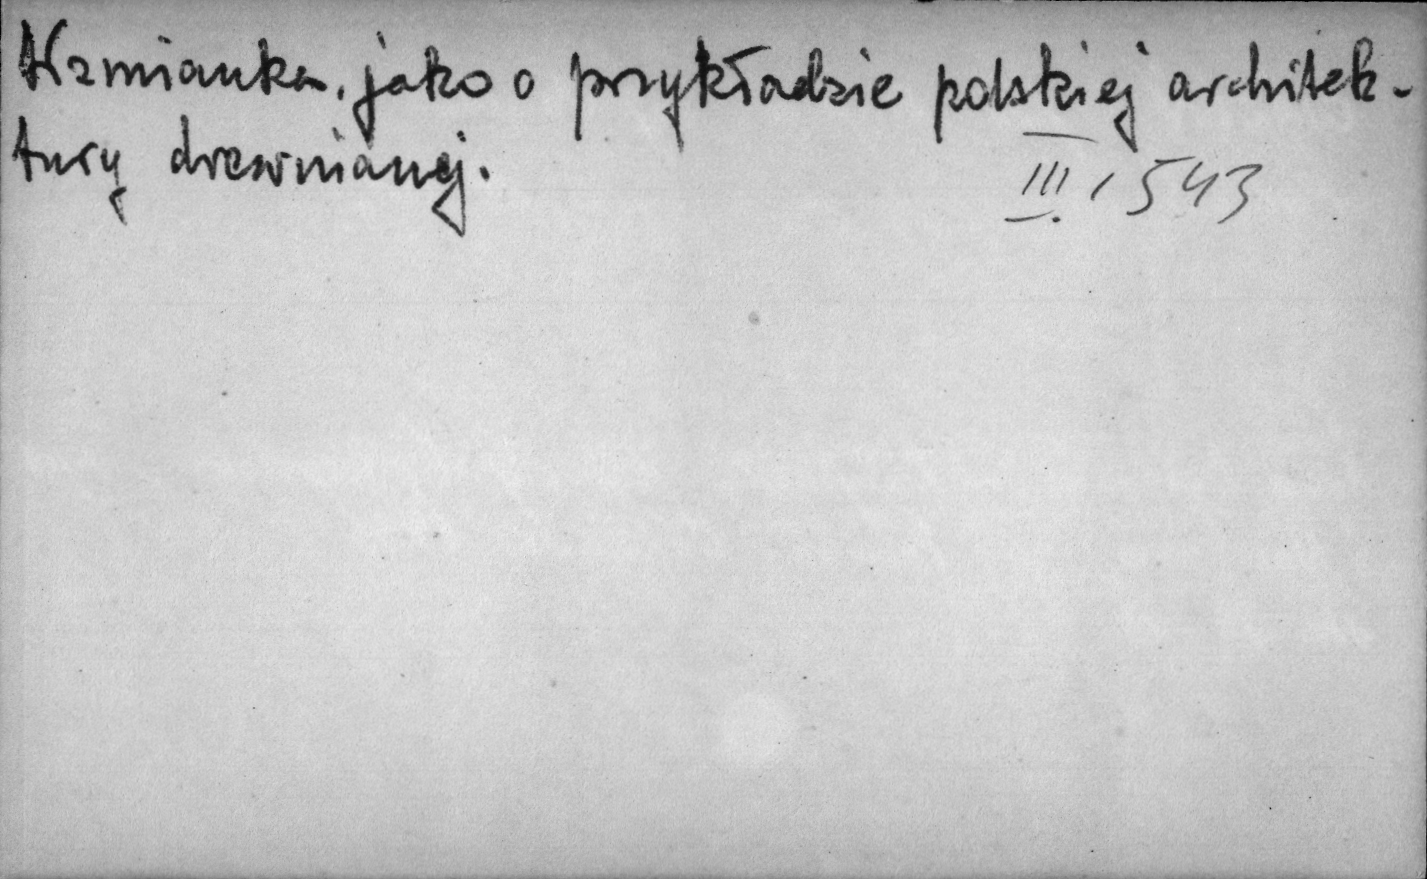 Wzmianka, jako o przykładzie polskiej architek-
tury drewnianej.
III, 1543